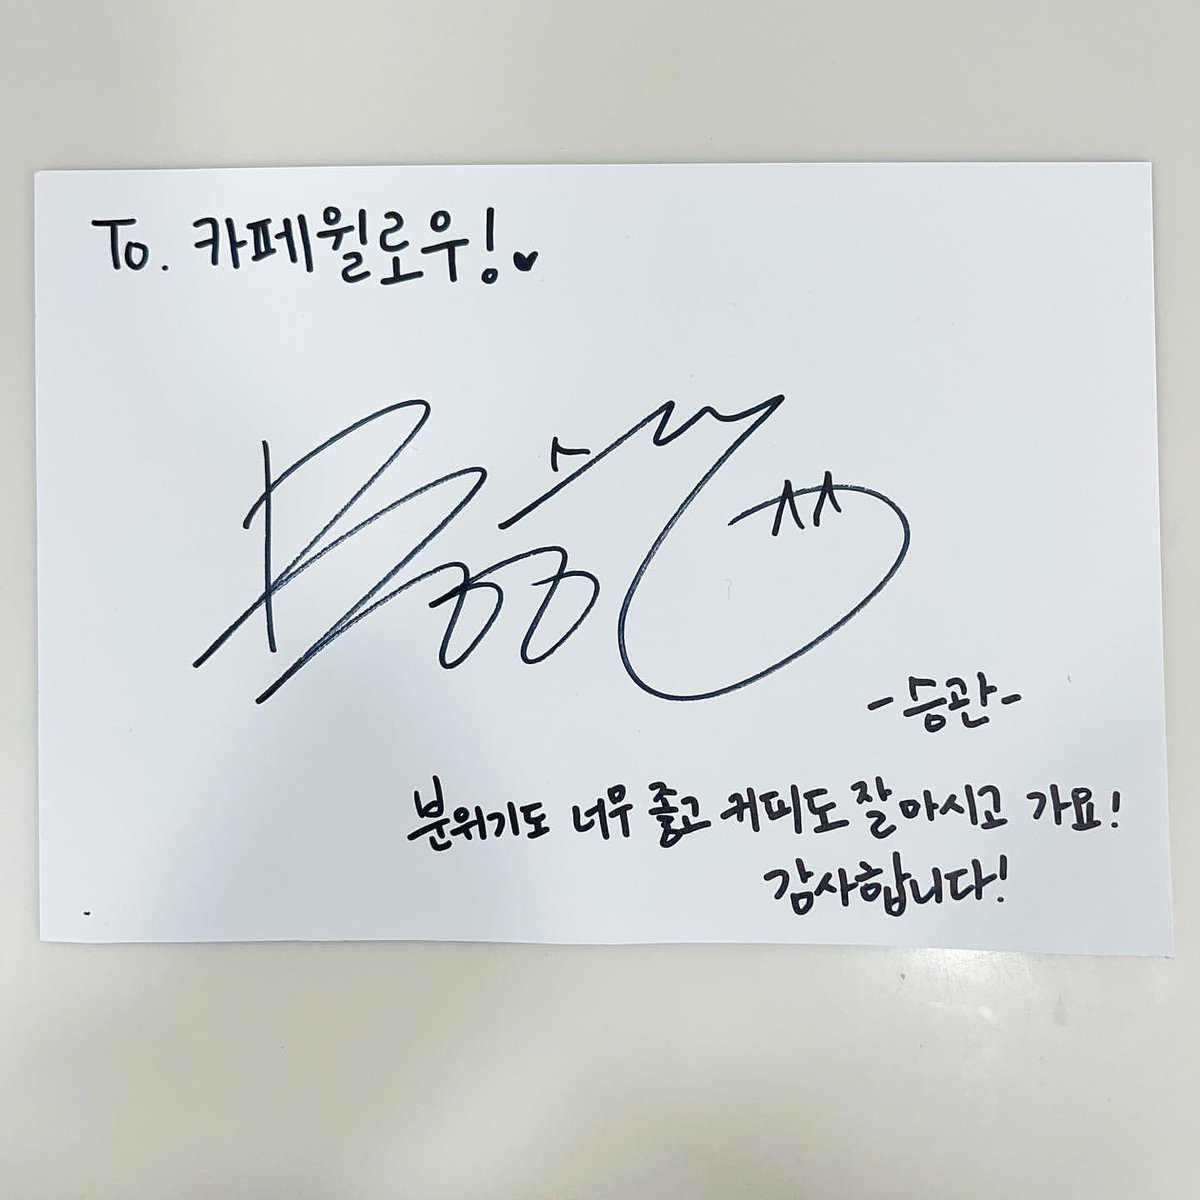 To. 카페윌로우!♥
-승관-
분위기도 너무 좋고 커피도 잘 마시고 가요!
감사합니다!